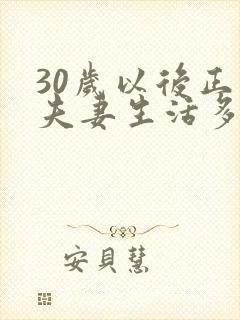 30歲以後正
夫妻生活多
安貝慧